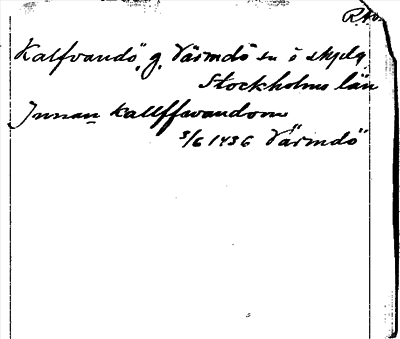 Kalfvandö, g. Värmdö sn o skplg
Stockholms län
Innan kallffwandom
3/6 1436 Värmdö